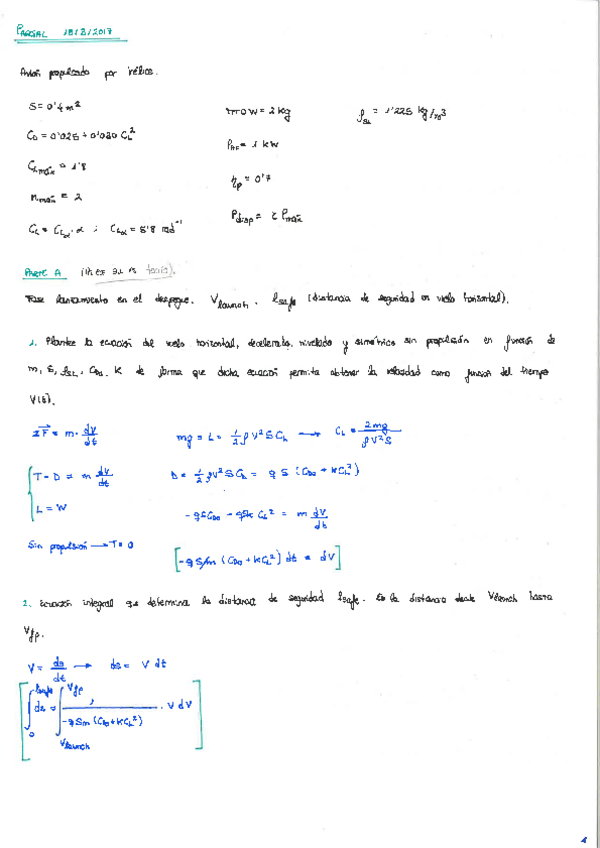 PARCIAL 18/3/2017
Avión propulsado por hélice.
S = 0'4 m² MTOW = 2 kg ρ_SL = 1'225 kg/m³
C_D = 0'025 + 0'080 C_L² P_AF = 1 kW
C_Lmáx = 1'8 η_p = 0'7
n_máx = 2 P_disp = τ P_máx
C_L = C_Lα · α ; C_Lα = 5'8 rad⁻¹
PARTE A
Fase lanzamiento en el despegue. V_launch. l_safe (distancia de seguridad en vuelo horizontal).
1. Plantee la ecuación del vuelo horizontal, decelerado, nivelado y simétrico sin propulsión en función de
m, S, ρ_SL, C_D0, K de forma que dicha ecuación permita obtener la velocidad como función del tiempo
V(t).
ΣF = m · dV/dt mg = L = 1/2 ρV²SC_L → C_L = 2mg/ρV²S
T - D = m dV/dt D = 1/2 ρV²SC_D = q S (C_D0 + KC_L²)
L = W
-qSC_D0 - qSK C_L² = m dV/dt
Sin propulsión → T = 0 [-qS/m (C_D0 + KC_L²) dt = dV]
2. Ecuación integral que determina la distancia de seguridad l_safe. Es la distancia desde V_launch hasta
V_fp.
V = ds/dt → ds = V dt
[∫₀^l_safe ds = ∫_Vlaunch^Vfp 1/-qSm (C_D0 + KC_L²) · V dV]
1